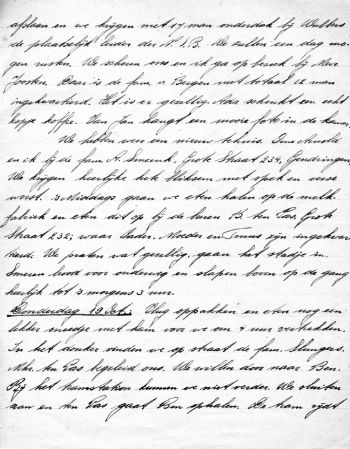 afslaan en we krijgen met 17 man onderdak bij Wullers
de plaatselijk leider der N.S.B. We zullen een dag mo-
gen rusten. We scheren ons en ik ga op bezoek bij Mevr.
Joosten. Daar is de fam. v. Bergen met totaal 12 man
ingekwartierd. Het is er gezellig. Ada schenkt een echt
kopje koffie. Van Jan hangt een mooie foto in de kamer.
We hebben weer een nieuw tehuis. Arnold
en ik bij de fam. A. Smeenk, Grote Straat 234, Gendringen
We krijgen heerlijke hete bliksem met spek en verse
worst. 's Middags gaan we eten halen op de melk
fabriek en eten dit op bij de heren B. ten Pas Grote
Straat 232; waar Vader, Moeder en Truus zijn ingekwar-
tierd. We praten wat gezellig, gaan het stadje in.
Smeren brood voor onderweg en slapen boven op de gang
heerlijk tot 3 morgens 3 uur.
Donderdag 19 Oct.: Vlug oppakken en eten nog een
lekker sneetje met ham voor we om 4 uur vertrekken.
In het donker vinden we op straat de fam. Slingers.
Mhr. ten Pas begeleid ons. We willen door naar Ben.
Bij het tramstation kunnen we niet verder. We sluiten
aan en ten Pas gaat Ben ophalen. De tram rijdt